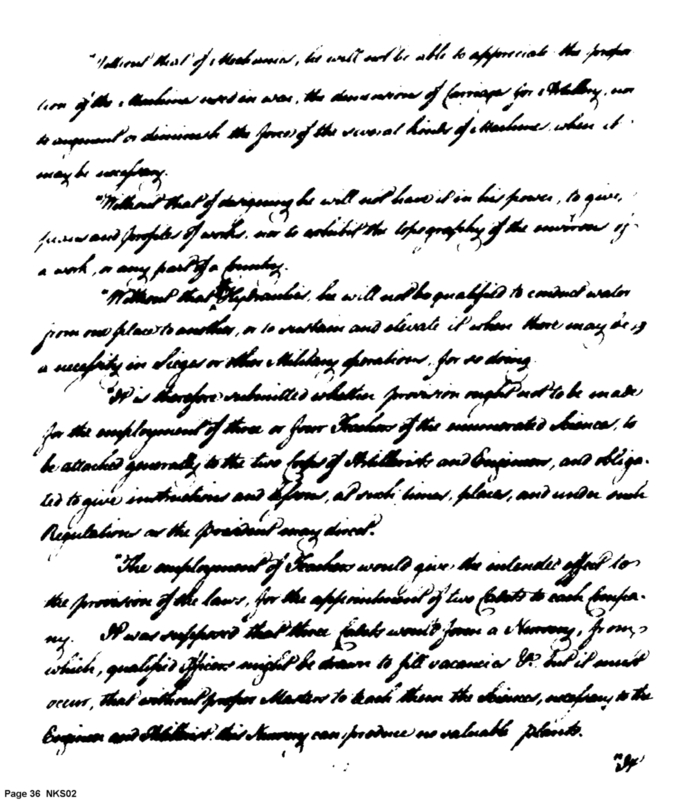 "Without that of Mechanics, he will not be able to appreciate the propor
tion of the Machines used in war, the dimensions of Carriages for Artillery, nor
to augment or diminish the forces of the several kinds of Machines when it
may be necessary.
"Without that of designing he will not have it in his power, to give,
plans and profiles of works, nor to exhibit the topography of the environs of
a work, or any part of a Country.
"Without that of Hydraulics, he will not be qualified to conduct water
from one place to another, or to sustain and elevate it when there may be
a necessity in Sieges or other Military operations, for so doing.
"It is therefore submitted whether provision ought not to be made
for the employment of three or four Teachers of the enumerated Sciences, to
be attached generally to the two Corps of Artillerists and Engineers, and obliga-
ted to give instructions and lessons, at such times, places, and under such
Regulations as the President may direct.
"The employment of Teachers would give, the intended effect to
the provision of the laws, for the appointment of two Cadets to each Compa-
ny. It was supposed that these Cadets would form a Nursery, from
which, qualified Officers might be drawn to fill vacancies &c. but it must
occur, that without proper Masters to teach them the Sciences, necessary to the
Engineer and Artillerist this Nursery can produce no valuable plants.
Page 36 NKS02